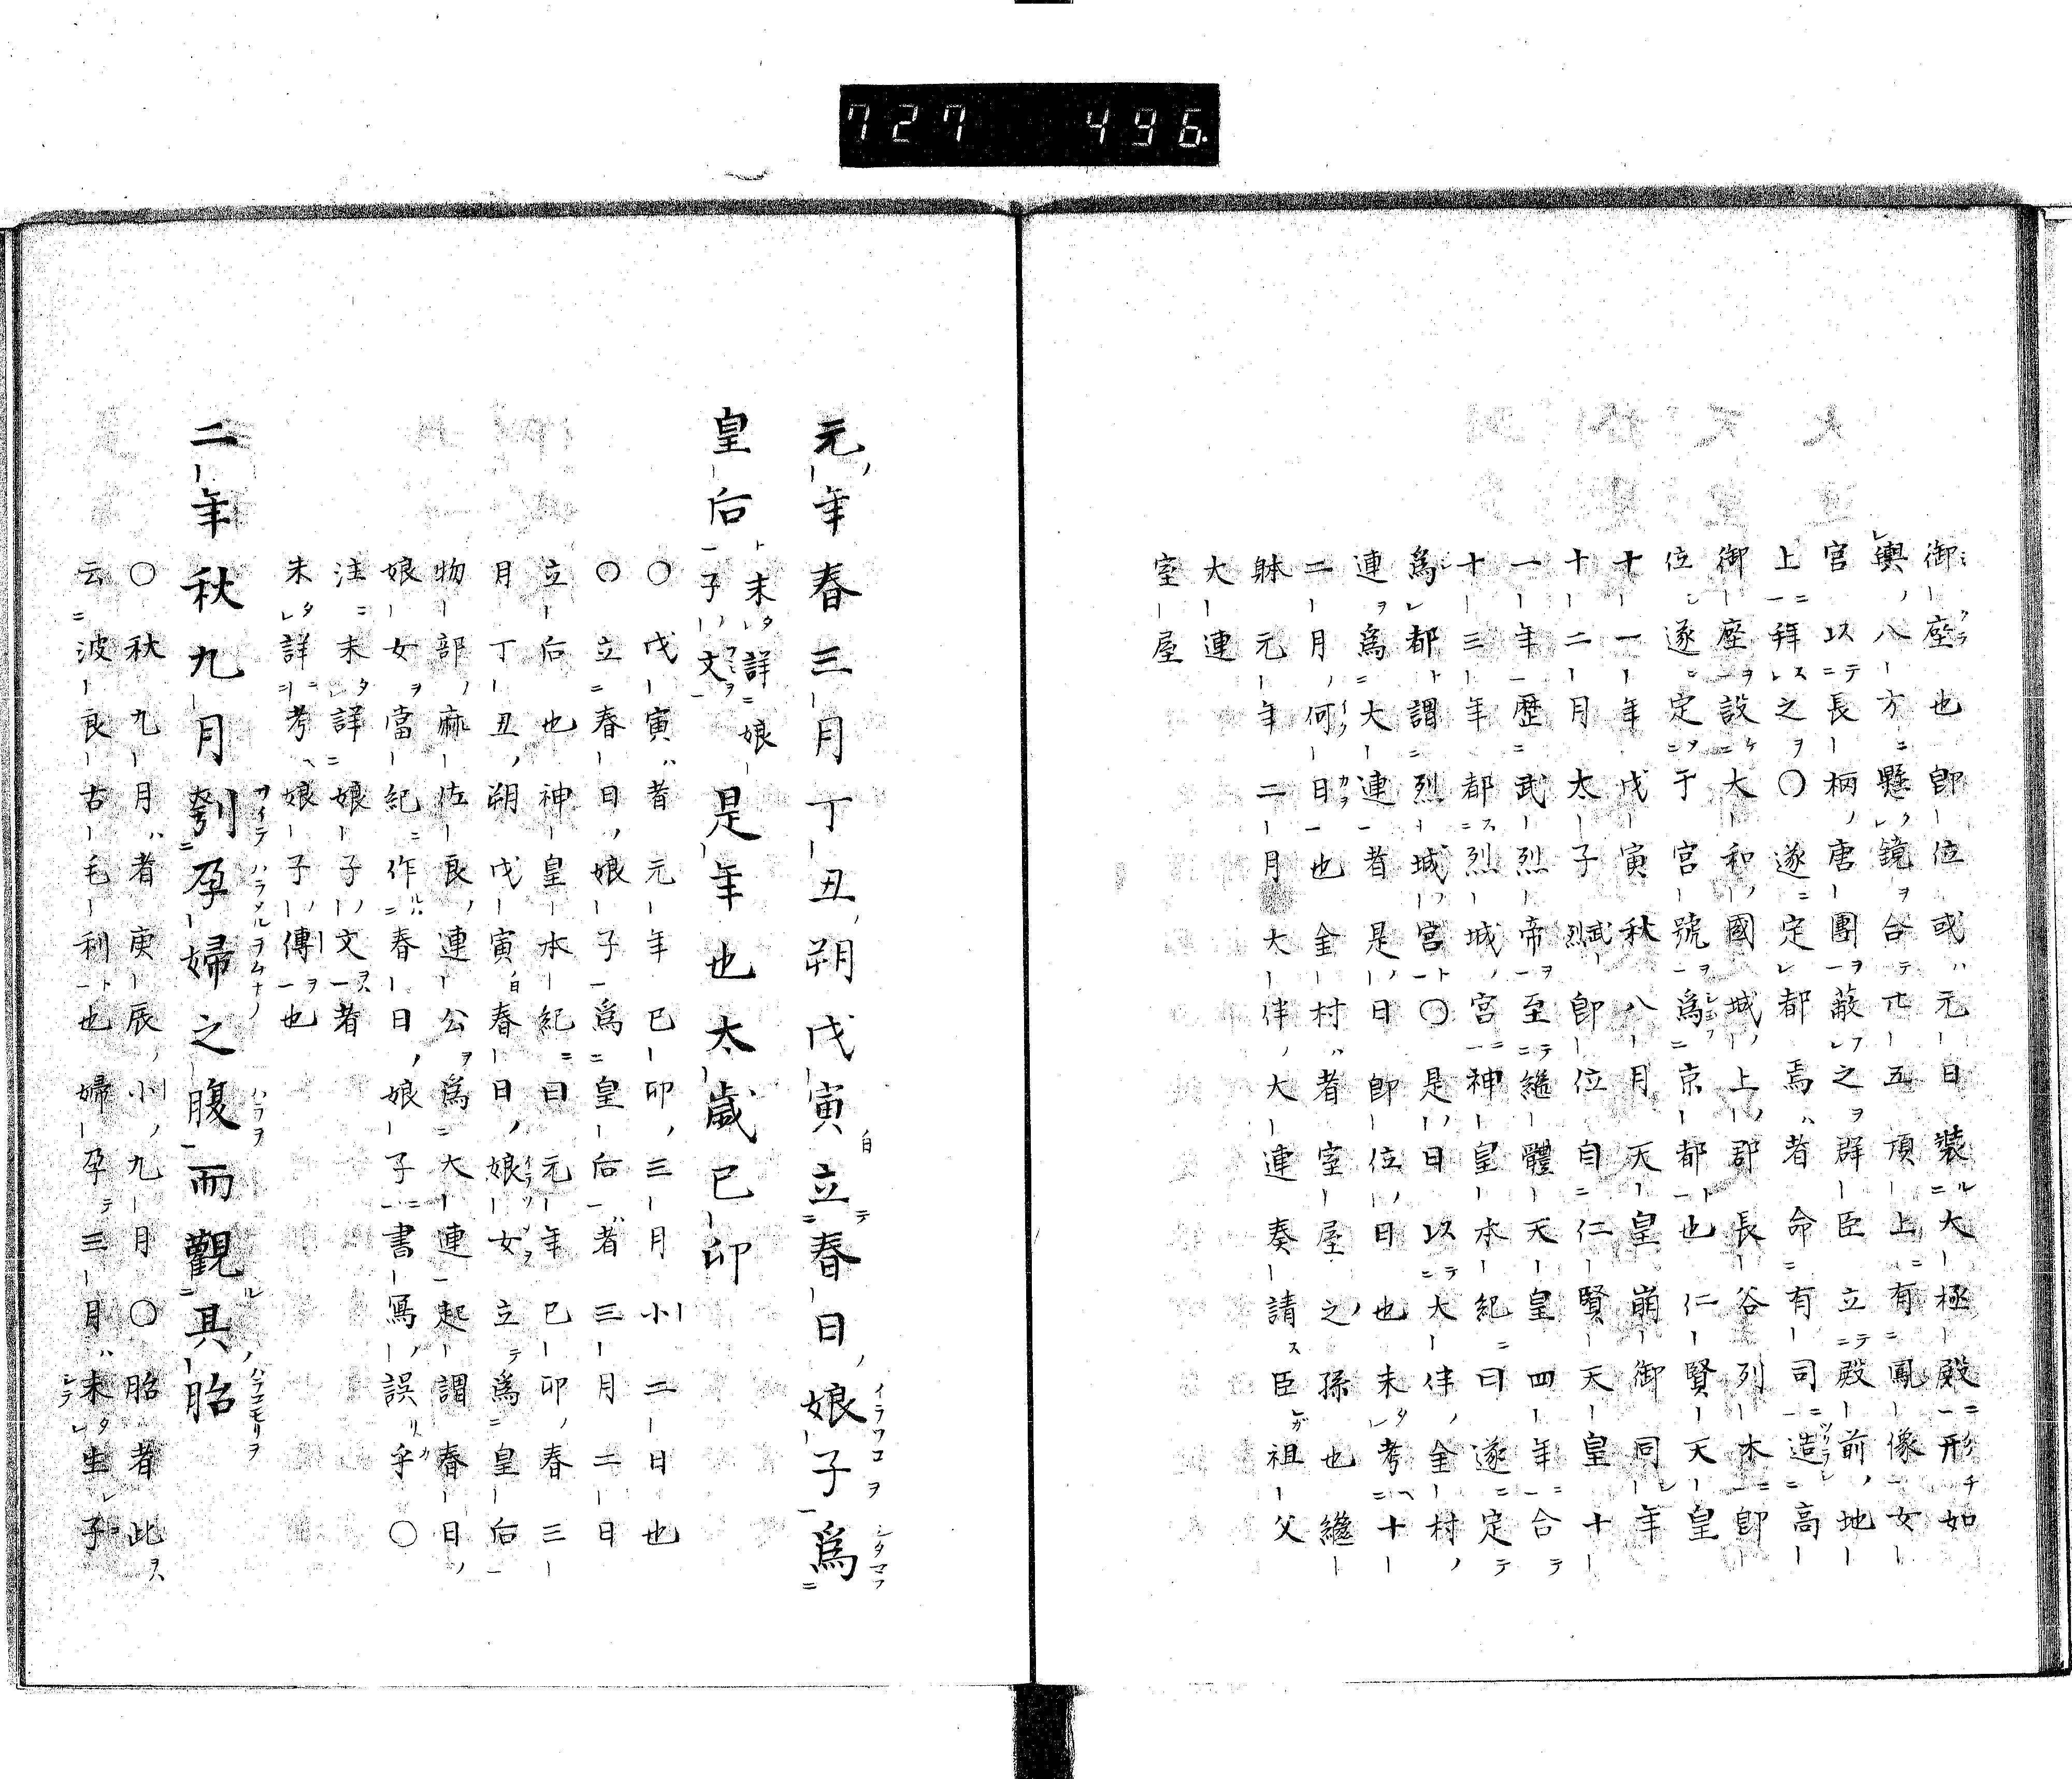 727 496
御座也即位或元日裝大極殿形如
輿八方懸鏡合卄五頂上有鳳像女
官以長柄唐團蔽之群臣立殿前地
上拜之〇遂定都焉者命有司造高
御座設大和國城上郡長谷列木即
位遂定于宮號為京都也仁賢天皇
十一年戊寅秋八月天皇崩御同年
十二月太子武烈即位自仁賢天皇十
一年歷武烈帝至繼體天皇四年合
十三年都烈城宮神皇本紀曰遂定
爲都謂烈城宮〇是日以大伴金村
連爲大連者是日即位日也未考十
二月何日也金村者室屋之孫也繼
躰元年二月大伴大連奏請臣祖父
大連
室屋
元年春三月丁丑朔戊寅立春日娘子爲
皇后未詳娘子文是年也太歲己卯
〇戊寅者元年己卯三月小二日也
〇立春日娘子爲皇后者三月二日
立后也神皇本紀曰元年己卯春三
月丁丑朔戊寅春日娘女立爲皇后
物部麻佐良連公爲大連起謂春日
娘女當紀作春日娘子書寫誤乎〇
注未詳娘子文者
未詳考娘子傳也
二年秋九月刳孕婦之腹而觀其胎
〇秋九月者庚辰小九月〇胎者此
云波良古毛利也婦孕三月未生子